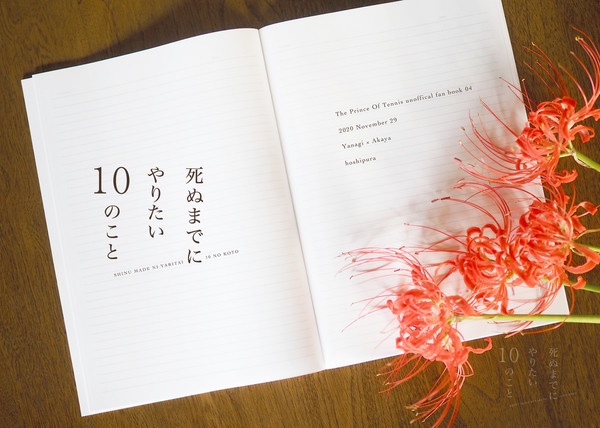 死ぬまでに
やりたい
10のこと
SHINU MADE NI YARITAI 10 NO KOTO
The Prince Of Tennis unoffical fan book 04
2020 November 29
Yanagi × Akaya
hoshipura
死ぬまでに
やりたい
10のこと